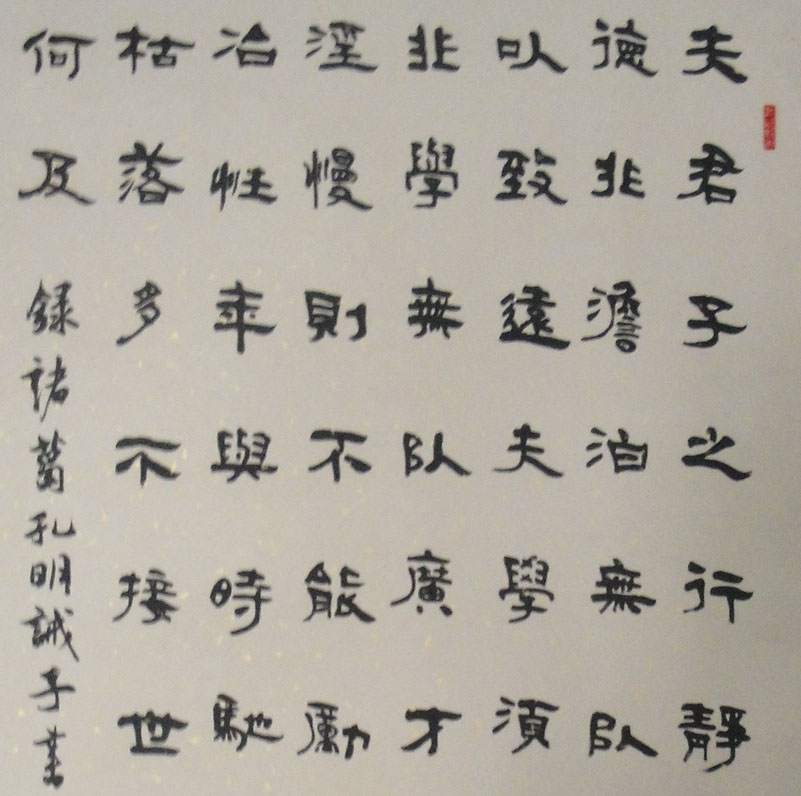 夫君子之行靜
德非澹泊無以
以致遠夫學須
非學無以廣才
淫慢則不能勵
冶性年與時馳
枯落多不接世
何及 錄諸葛孔明誡子書